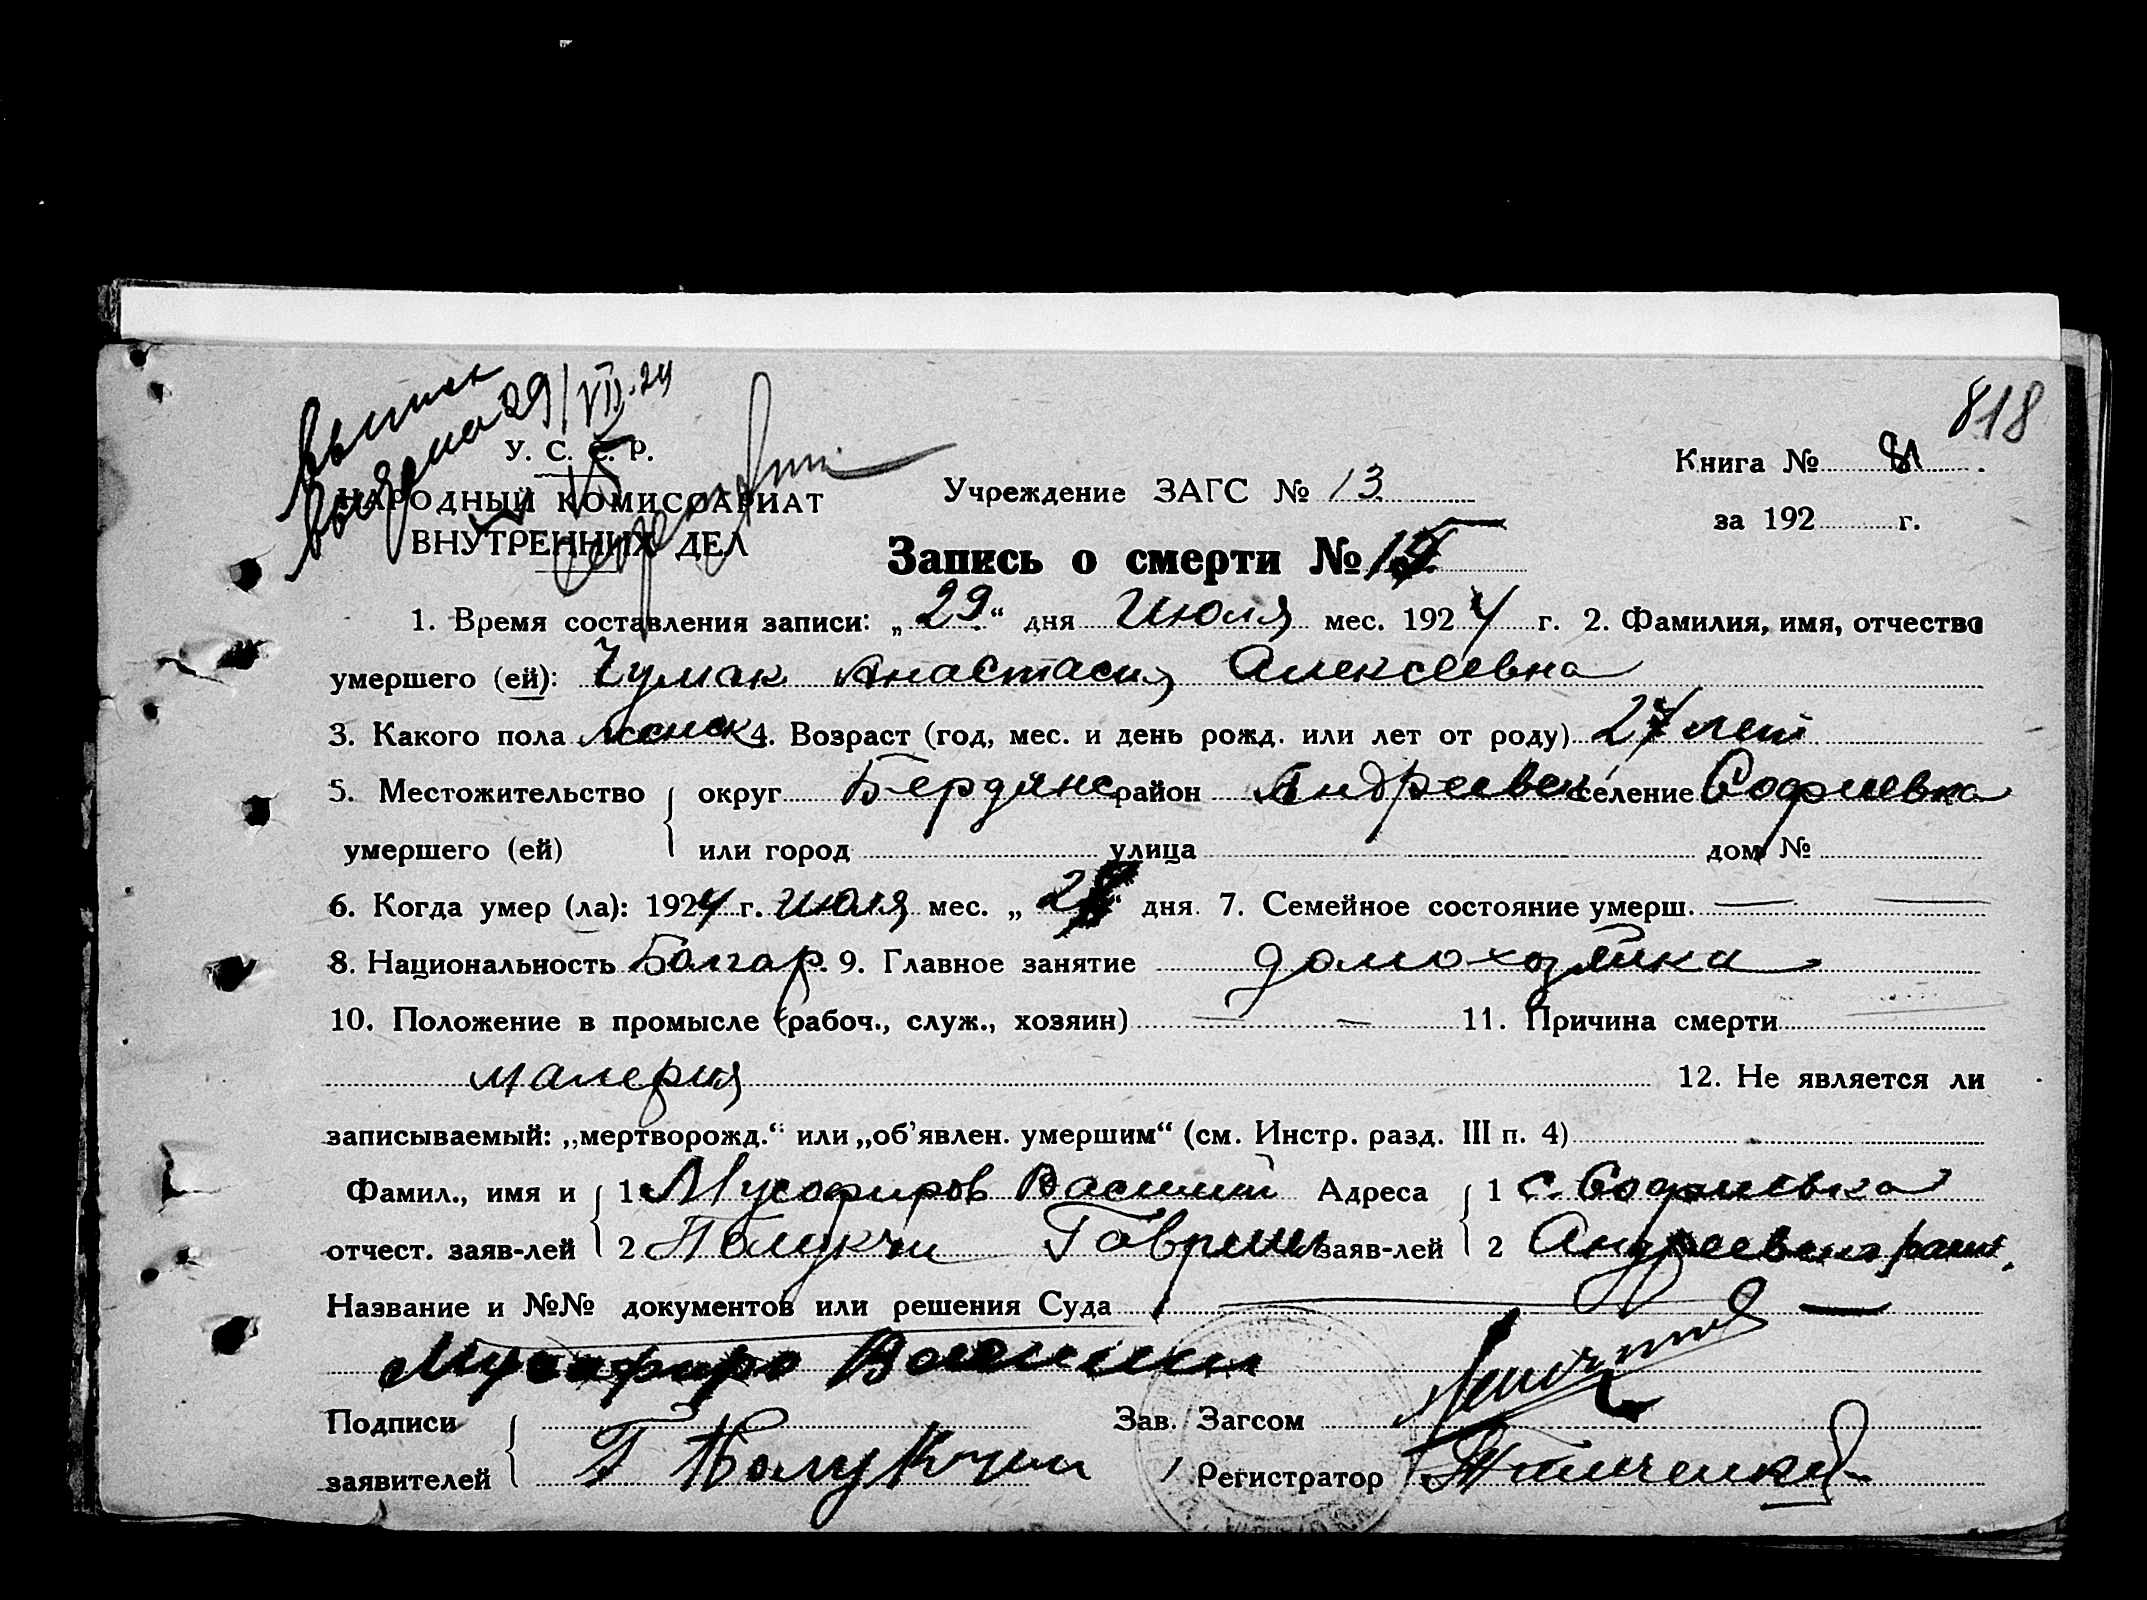 818
Выпись
выдана 29/VII-24
У. С. С. Р.
НАРОДНЫЙ КОМИССАРИАТ
ВНУТРЕННИХ ДЕЛ
Учреждение ЗАГС № 13
Книга №
за 192 г.
Запись о смерти № 15
1. Время составления записи: „29“ дня Июля мес. 1924 г. 2. Фамилия, имя, отчество
умершего (ей): Чумак Анастасия Алексеевна
3. Какого пола женск 4. Возраст (год, мес. и день рожд. или лет от роду) 27 лет
5. Местожительство округ Бердянс район Андреевск селение Софиевка
умершего (ей) или город улица дом №
6. Когда умер (ла): 1924 г. июля мес. „28“ дня. 7. Семейное состояние умерш. —
8. Национальность Болгар. 9. Главное занятие домохозяйка
10. Положение в промысле (рабоч., служ., хозяин) — — 11. Причина смерти
малерия 12. Не является ли
записываемый: „мертворожд.“ или „об’явлен. умершим“ (см. Инстр. разд. III п. 4)
Фамил., имя и 1 Мусафиров Василий Адреса 1 с. Софиевка
отчест. заяв-лей 2 Палукчи Гавриил заяв-лей 2 Андреевка
Название и №№ документов или решения Суда —
Мусафиро Василий
Подписи Зав. Загсом
заявителей Г Палукчи Регистратор